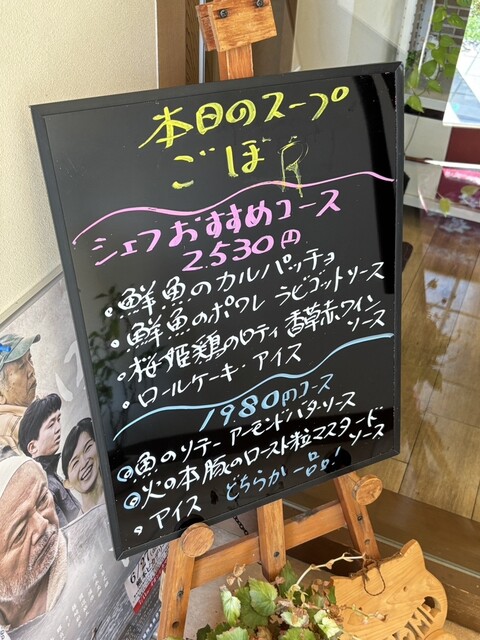 本日のスープ
ごぼう
シェフおすすめコース
2530円
・鮮魚のカルパッチョ
・鮮魚のポワレ ラビゴットソース
・桜姫鶏のロティ 香草赤ワイン
ソース
・ロールケーキ・アイス
1980円コース
◎魚のソテー アーモンドバターソース
◎火の本豚のロースト粒マスタード
ソース
・アイス どちらか一品!